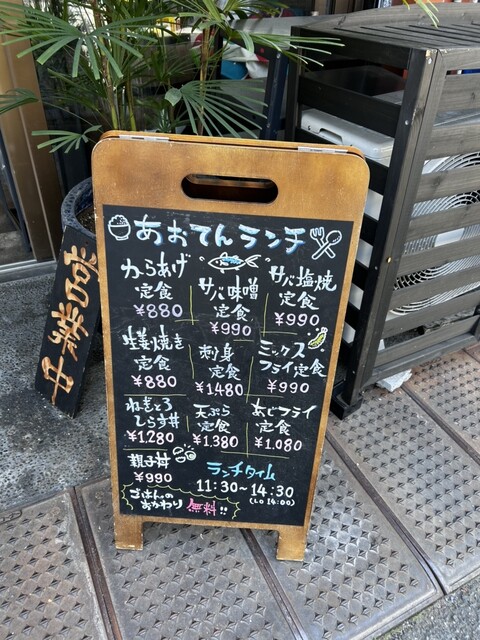 あおてんランチ
からあげ
定食
¥880
サバ味噌
定食
¥990
サバ塩焼
定食
¥990
生姜焼き
定食
¥880
刺身
定食
¥1.480
ミックス
フライ定食
¥990
ねぎとろ
しらす丼
¥1.280
天ぷら
定食
¥1.380
あじフライ
定食
¥1.080
親子丼
¥990
ランチタイム
11:30~14:30
(LO 14:00)
ごはんの
おかわり
無料!!
営業中